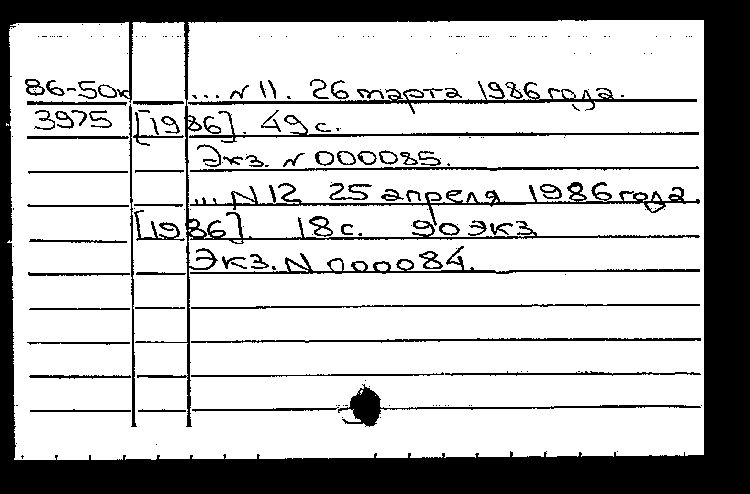 86-50к ... N 11. 26 марта 1986 года.
3975 [1986]. 49 с.
Экз. N 000085.
... N 12 25 апреля 1986 года.
[1986]. 18 с. 90 экз.
Экз. N 000084.